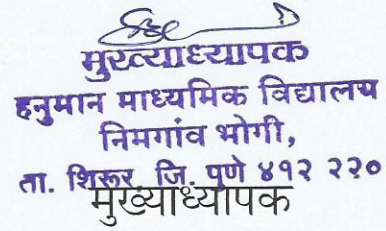 मुख्याध्यापक
हनुमान माध्यमिक विद्यालय
निमगांव भोगी,
ता. शिरूर जि. पुणे ४१२ २२०
मुख्याध्यापक